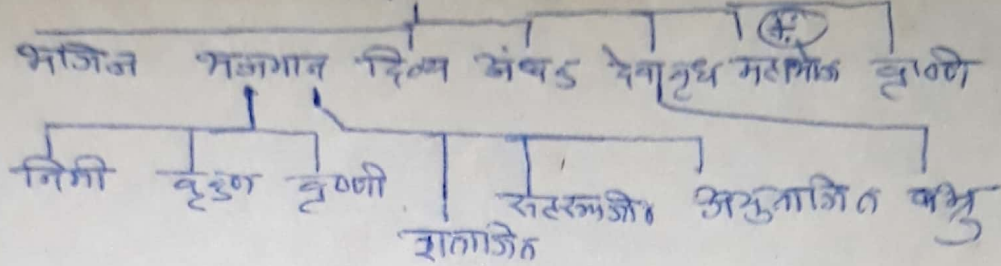 भजिन भजमान दिव्य अंधड देवावृध महाभोज वृष्णि
निमी वृकुण वृष्णी सहस्त्रजीत अयुताजित बभ्रु
शताजित